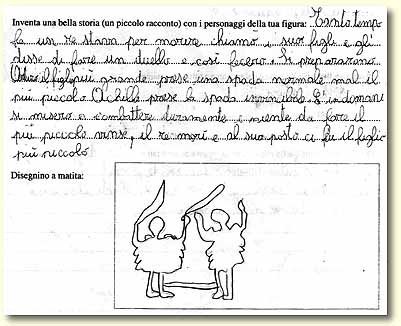 Inventa una bella storia (un piccolo racconto) con i personaggi della tua figura: Tanto tempo
fa un re stava per morire chiamò i suoi figli e gli
disse di fare un duello e così fecero. Si prepararono
il figlio più grande prese una spada normale ma il
più piccolo Achille prese la spada invincibile. E in domani
si misero a combattere duramente e niente da fare il
più piccolo vinse, il re morì e al suo posto ci fu il figlio
più piccolo
Disegnino a matita: